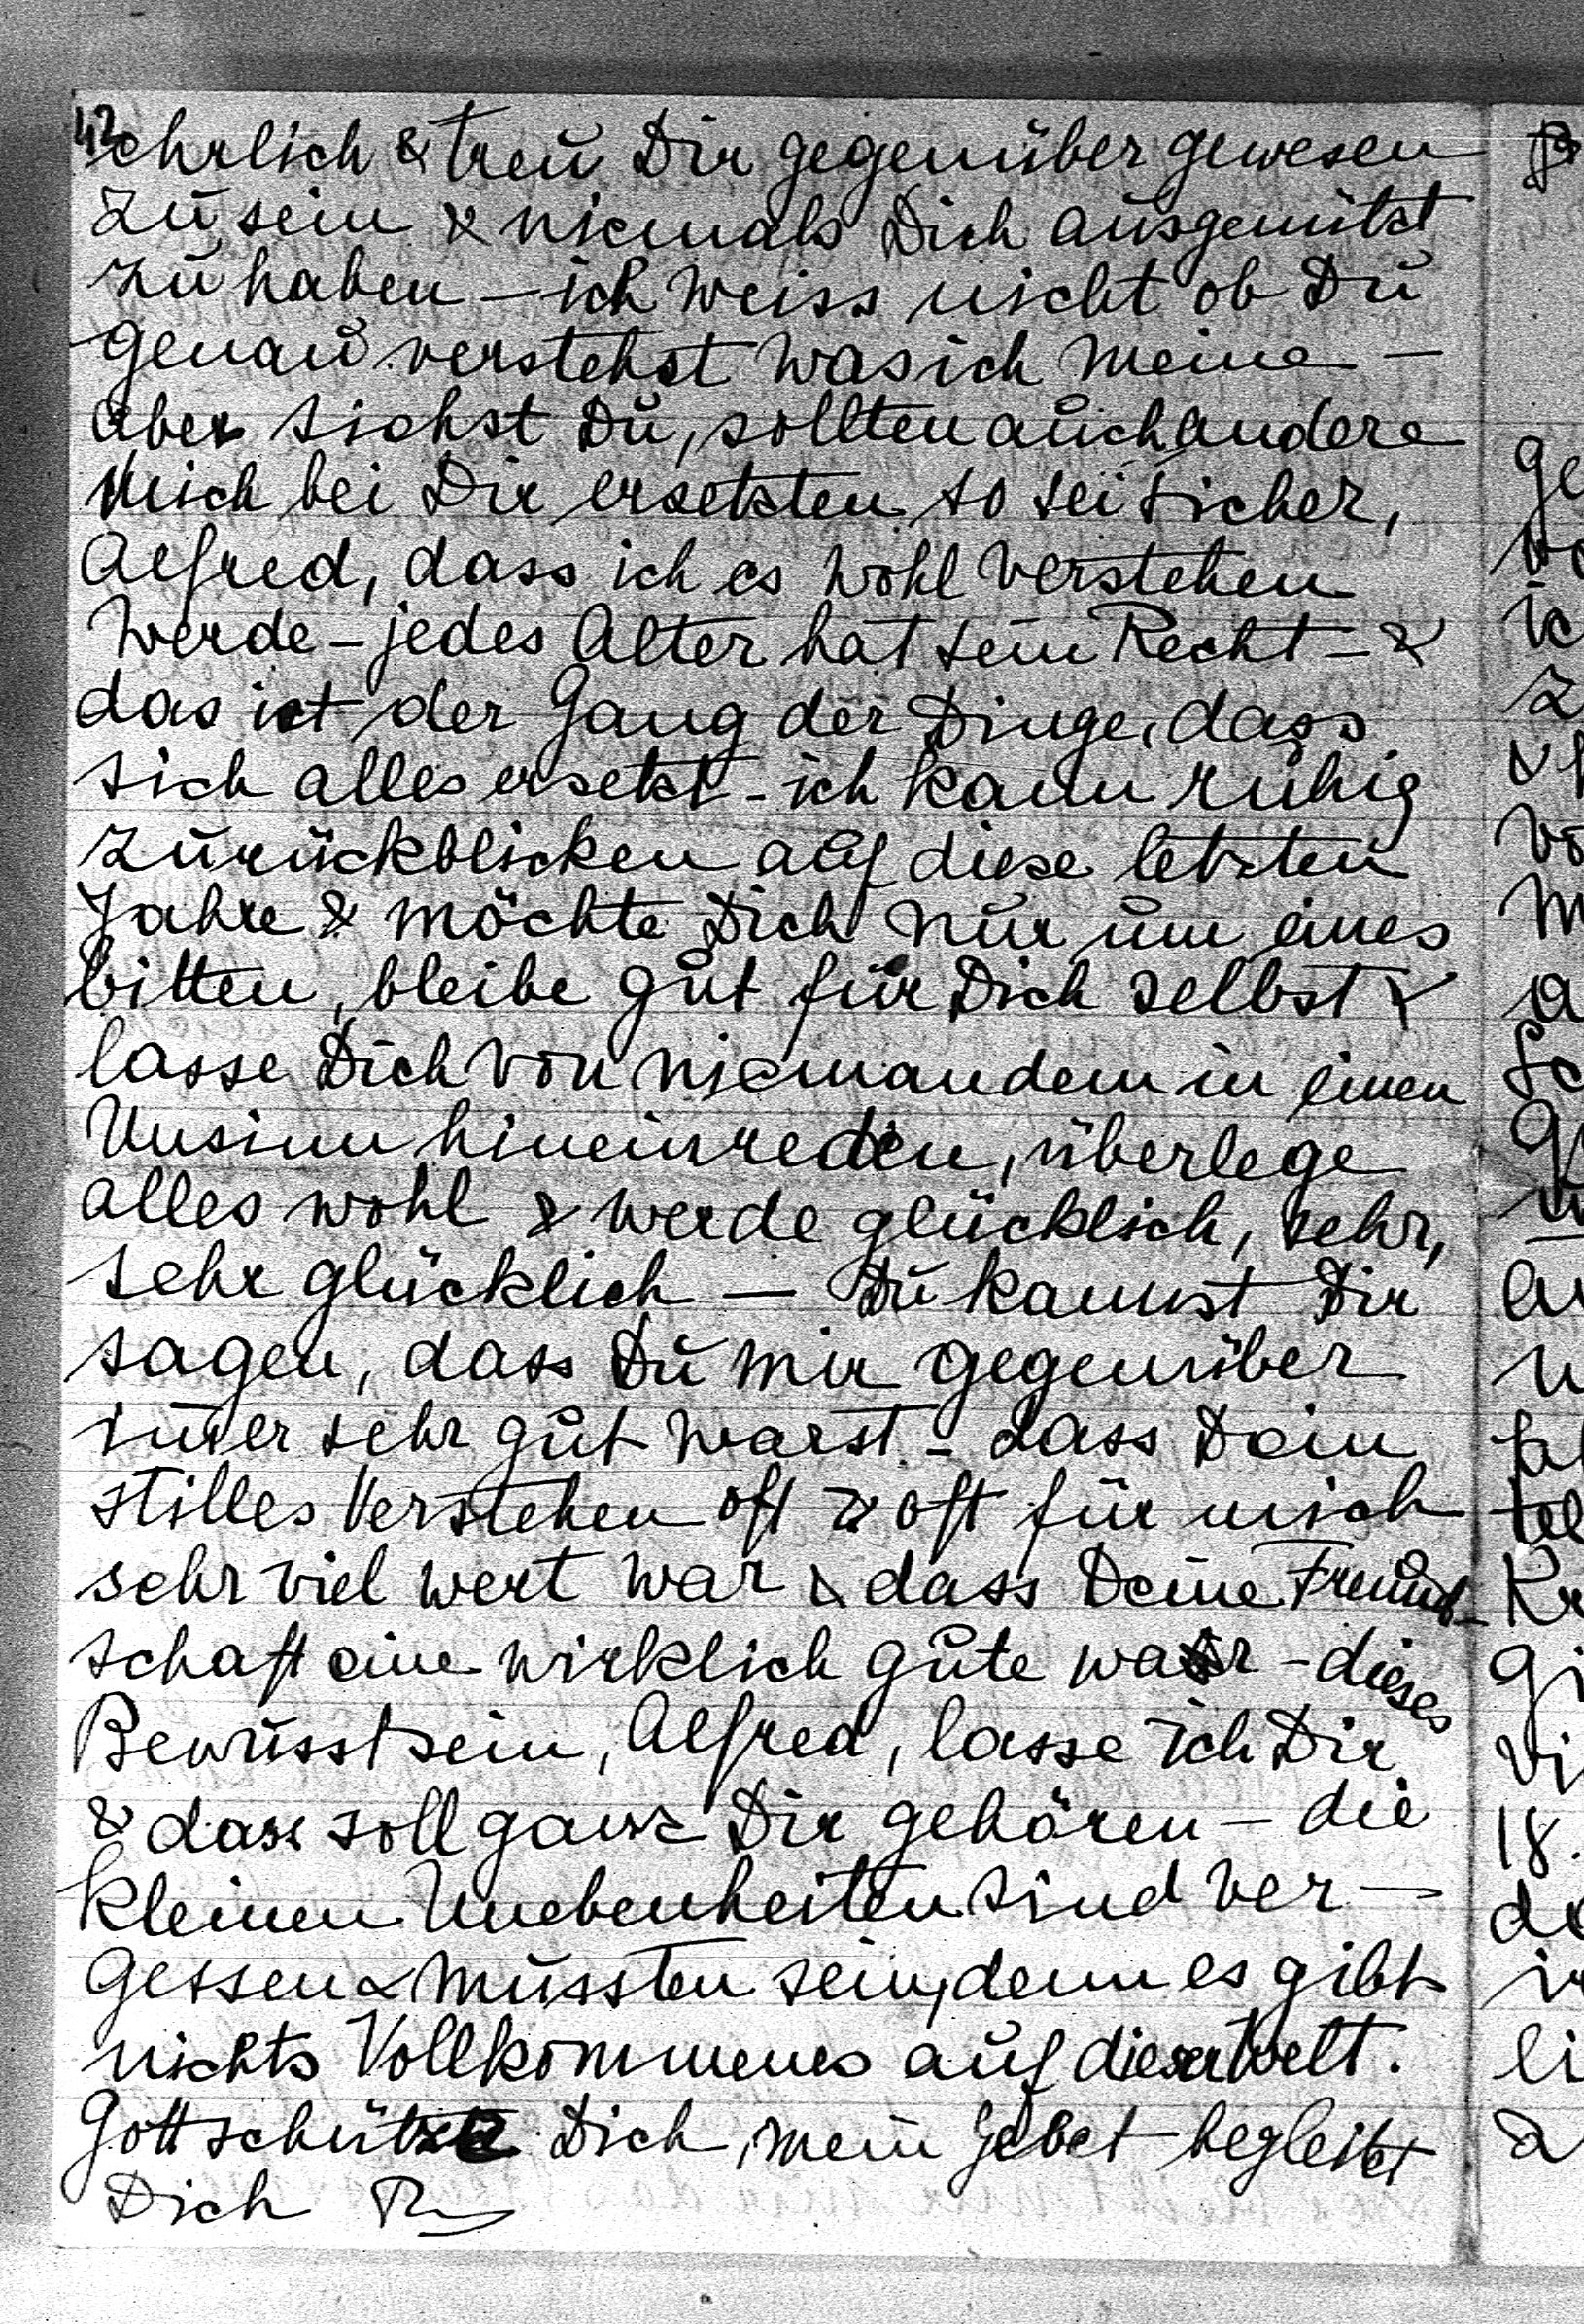 42
ehrlich & treu Dir gegenüber gewesen
zu sein & niemals Dich ausgenützt
zu haben – ich weiss nicht ob Du
genau verstehst was ich meine –
aber siehst Du, sollten auch andere
mich bei Dir ersetzten so sei sicher,
Alfred, dass ich es wohl verstehen
werde – jedes Alter hat sein Recht – &
das ist der Gang der Dinge, dass
sich alles ersetzt – ich kann ruhig
zurückblicken auf diese letzten
Jahre & möchte Dich nur um eines
bitten, bleibe gut für Dich selbst &
lasse Dich von niemandem in einen
Unsinn hineinreden, überlege
alles wohl & werde glücklich, sehr,
sehr glücklich – Du kannst Dir
sagen, dass Du mir gegenüber
imer sehr gut warst – dass Dein
stilles Verstehen oft & oft für mich
sehr viel wert war & dass Deine Freund-
schaft eine wirklich gute war – dieses
Bewusstsein, Alfred, lasse ich Dir
& dass soll ganz Dir gehören – die
kleinen Unebenheiten sind ver-
gessen & müssten sein, denn es gibt
nichts Vollkommenes auf dieser Welt.
Gott schütze Dich, mein Gebet begleitet
Dich